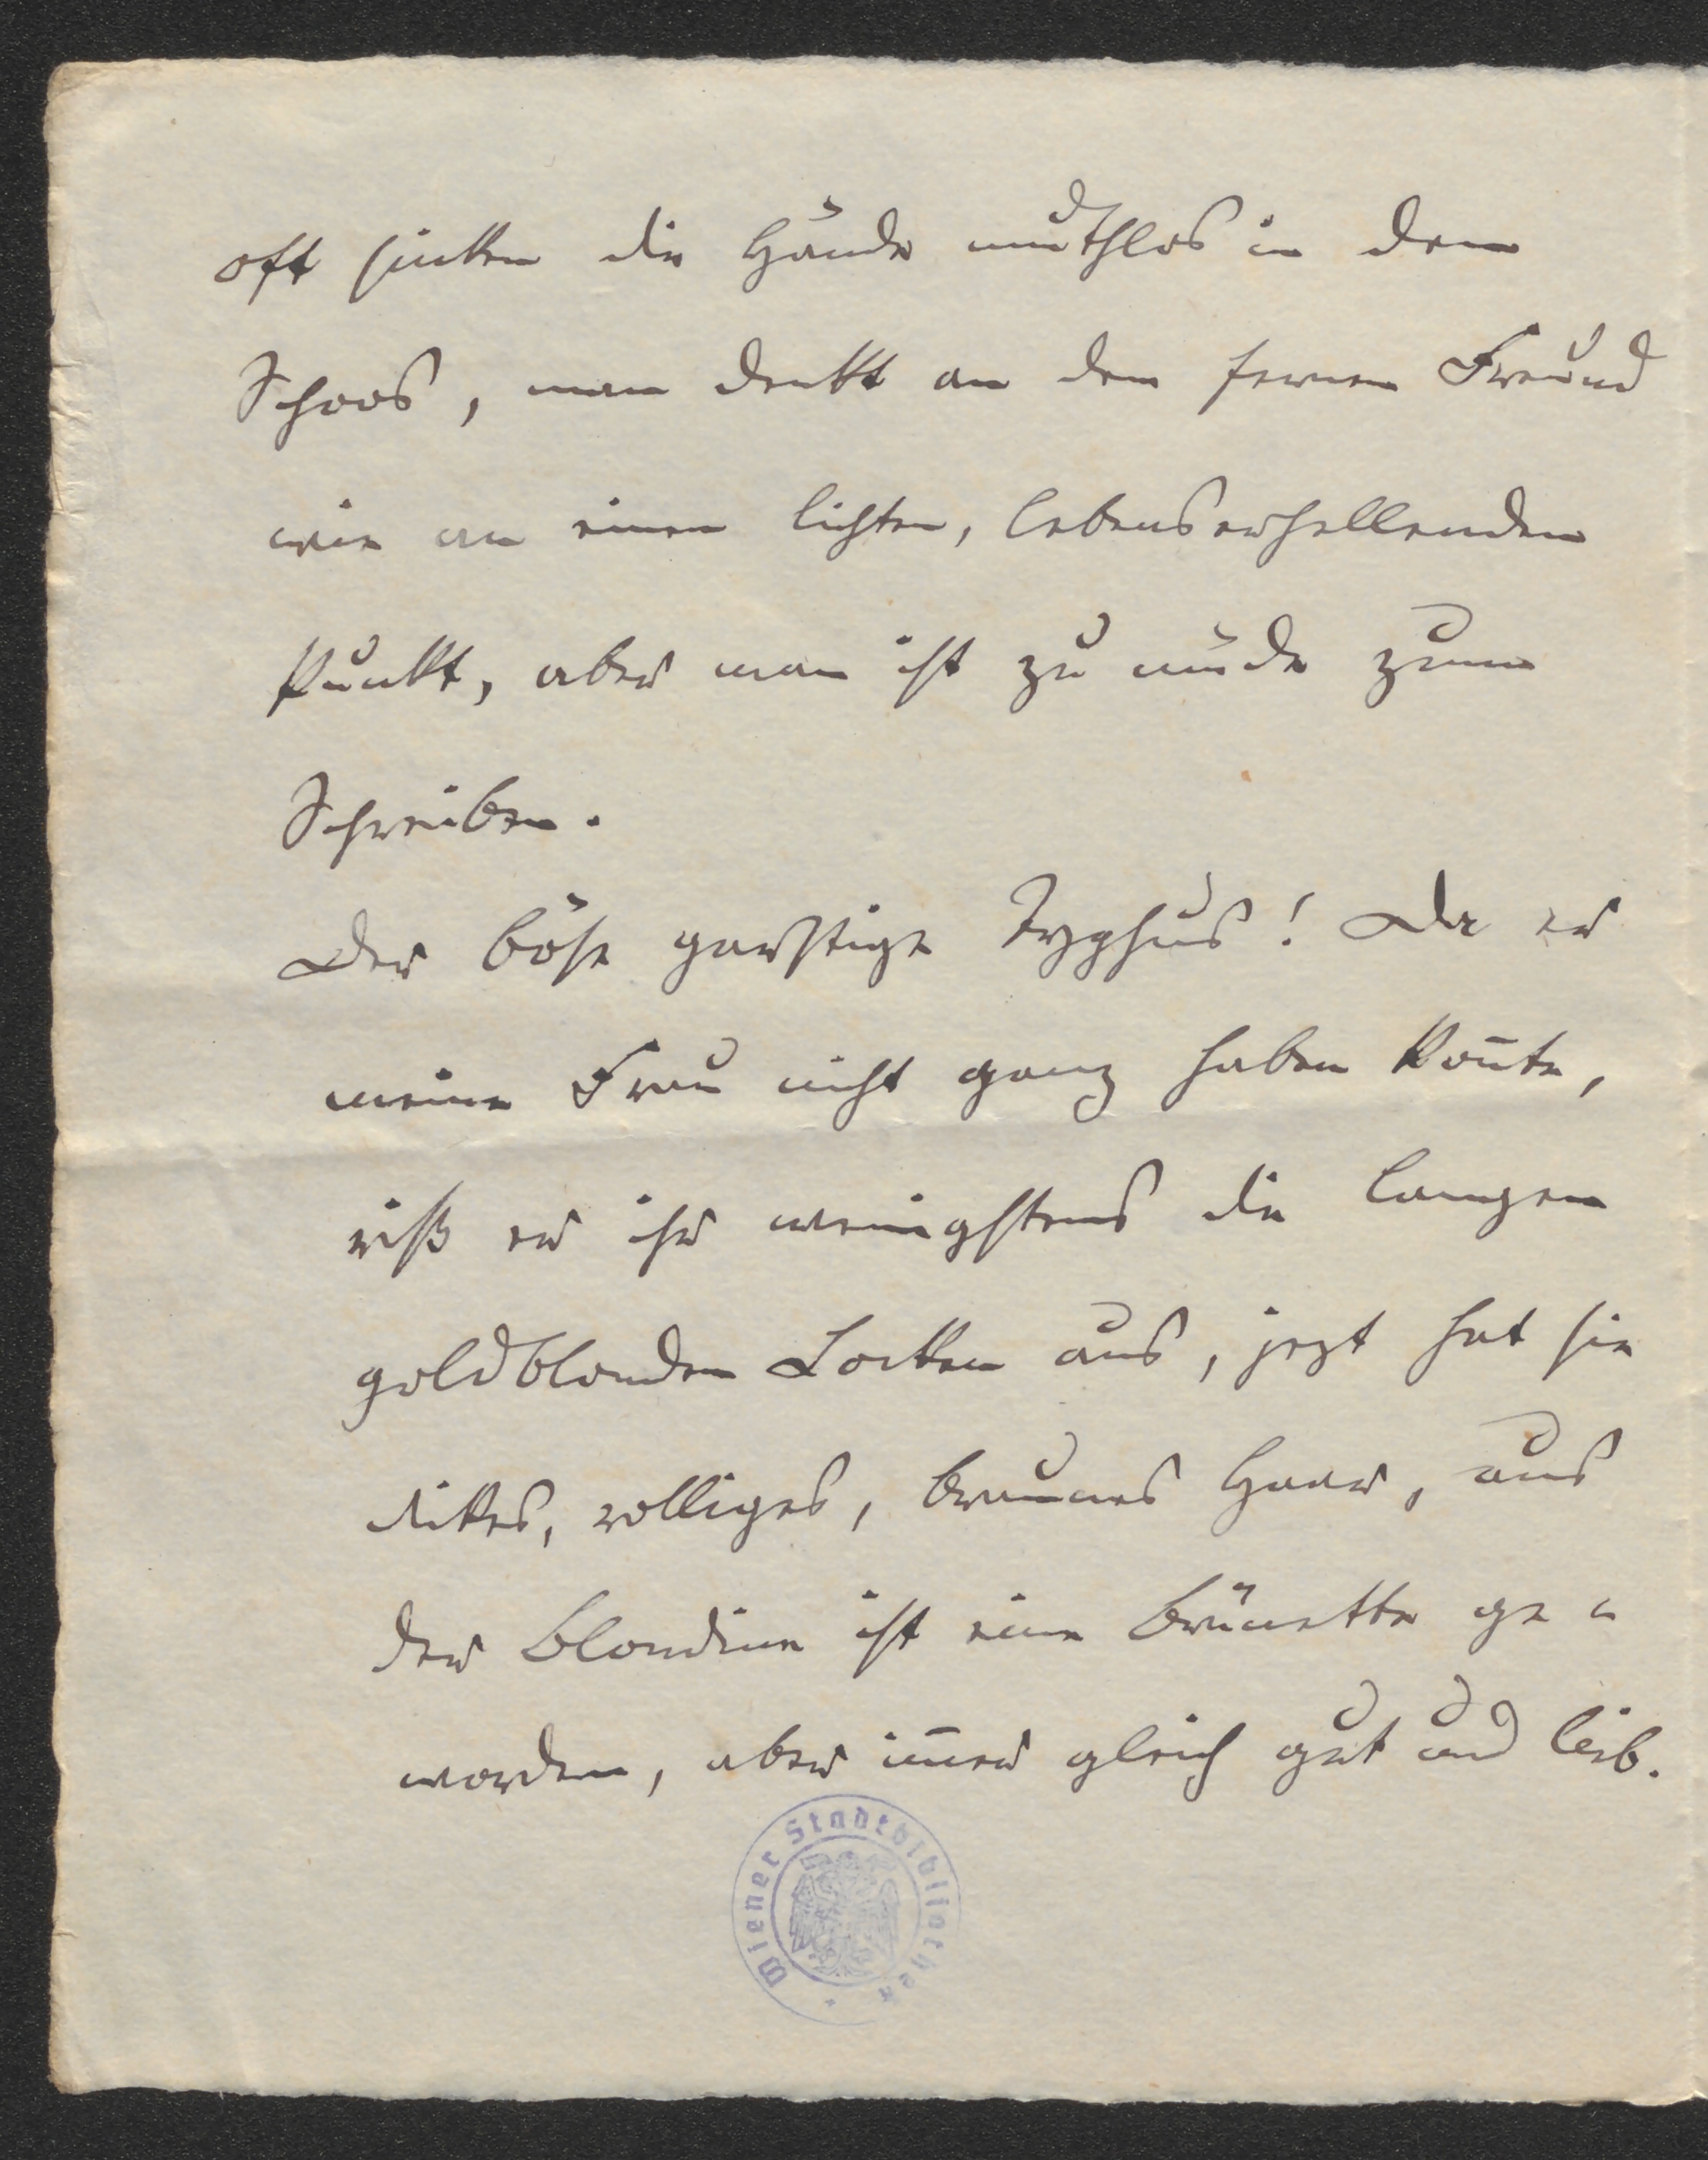 oft sinken die Hände muthlos in den
Schoos, man denkt an den fernen Freund
wie an einen lichten, lebenserhellenden
Punkt, aber man ist zu müde zum
Schreiben.
Der böse garstige Typhus! Da er
meine Frau nicht ganz haben kon̄te,
riß er ihr wenigstens die langen
goldblonden Locken aus, jezt hat sie
dikes, wolliges, braunes Haar, aus
der Blondine ist eine Brünette ge-
worden, aber im̄er gleich gut und lieb.
Wiener Stadtbibliothek